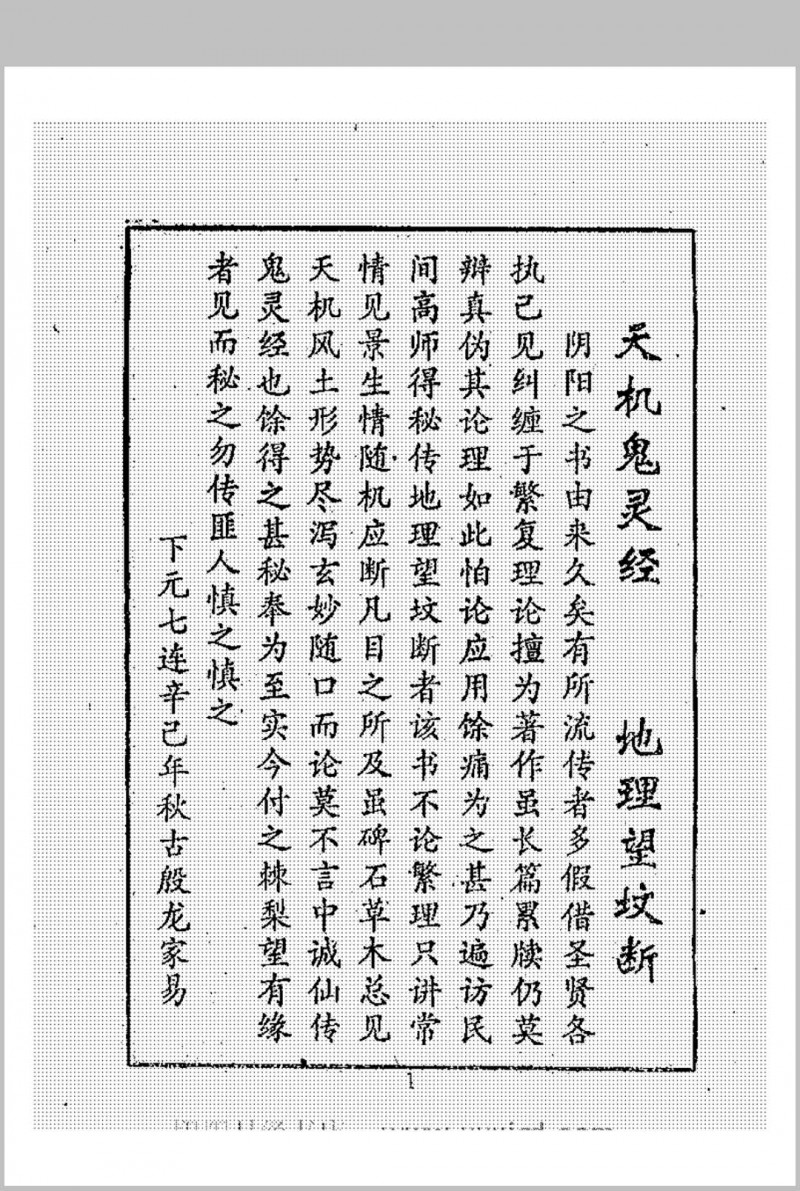 天机鬼灵经 地理望坟断
阴阳之书由来久矣有所流传者多假借圣贤各
执己见纠缠于繁复理论擅为著作虽长篇累牍仍莫
辩真伪其论理如此怕论应用馀痛为之甚乃遍访民
间高师得秘传地理望坟断者该书不论繁理只讲常
情见景生情随机应断凡目之所及虽碑石草木总见
天机风土形势尽泻玄妙随口而论莫不言中诚仙传
鬼灵经也馀得之甚秘奉为至实今付之棘梨望有缘
者见而秘之勿传匪人慎之慎之
下元七连辛己年秋古殷龙家易
1